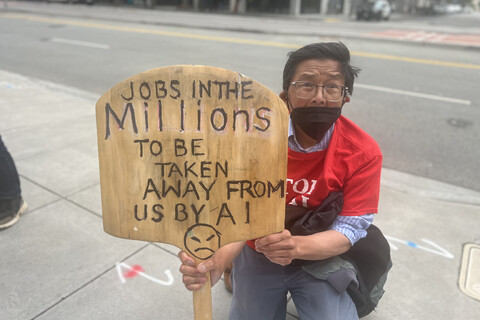 JOBS IN THE
Millions
TO BE
TAKEN
AWAY FROM
US BY AI